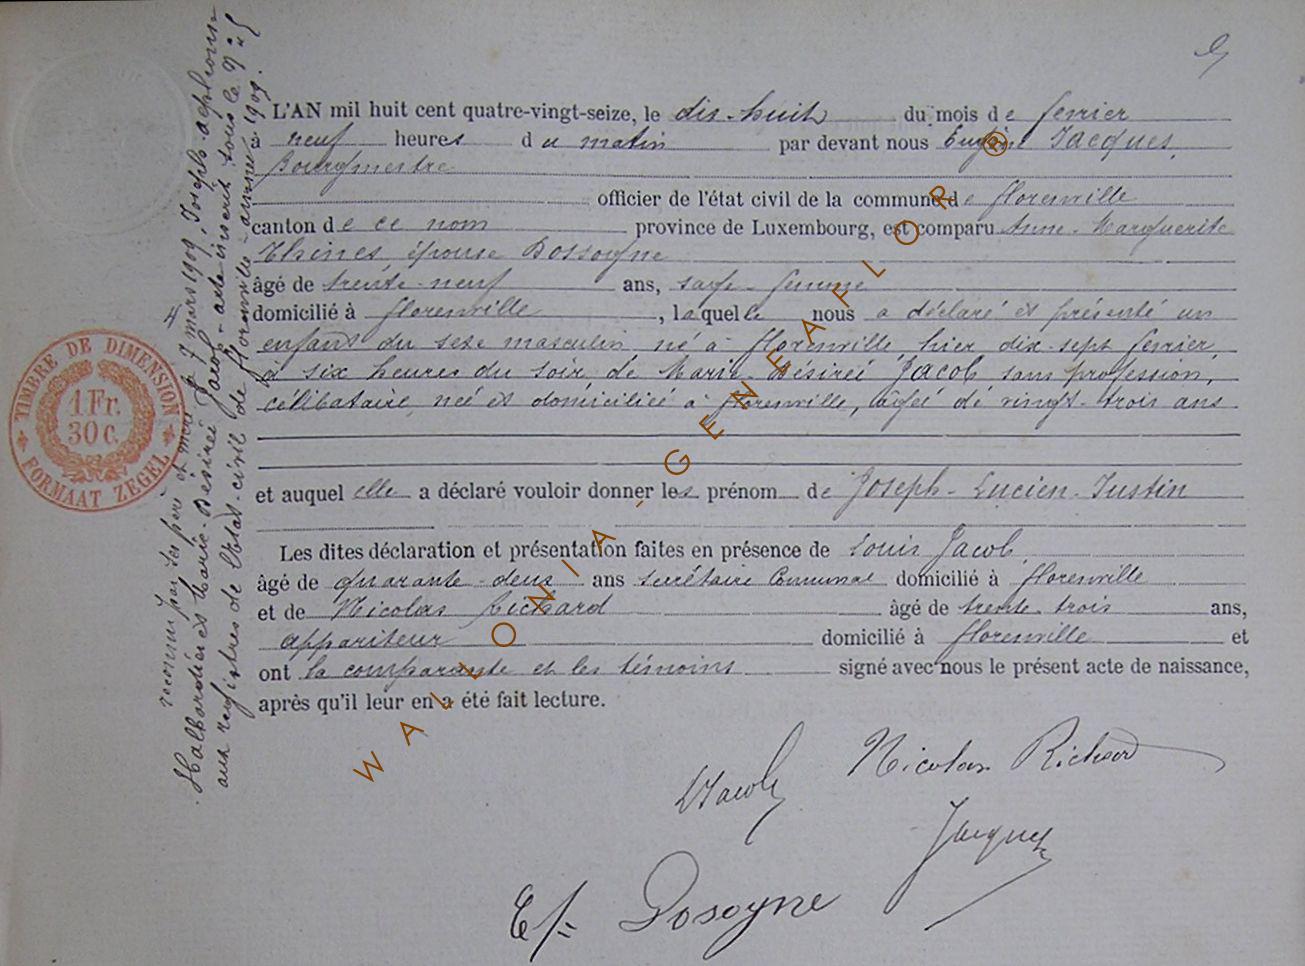 L'AN mil huit cent quatre-vingt-seize, le dix-huit du mois de fevrier
à neuf heures du matin par devant nous Eugène Jacques,
Bourgmestre
officier de l'état civil de la commune de florenville
canton de ce nom province de Luxembourg, est comparu Anne-Marguerite
Thines épouse Dossogne
âgé de trente-neuf ans, sage-femme
domicilié à florenville, laquelle nous a déclaré et présenté un
enfant du sexe masculin né à florenville, hier dix-sept fevrier
à six heures du soir, de Marie-Désirée Jacob, sans profession,
célibataire, née et domiciliée à florenville, âgée de vingt-trois ans
et auquel elle a déclaré vouloir donner les prénom de Joseph-Lucien-Justin
Les dites déclaration et présentation faites en présence de Louis Jacob
âgé de quarante-deux ans secrétaire Communal domicilié à florenville
et de Nicolas Richard âgé de trente-trois ans,
appariteur domicilié à florenville et
ont la comparante et les témoins signé avec nous le présent acte de naissance,
après qu'il leur en a été fait lecture.
LJacob
Nicolas Richard
Jacques
E/= Dosogne
reconnu par ses père et mère le 7 mars 1909, Joseph-alphonse
Halbardier et Marie-Désirée Jacob - acte inscrit sous le N° 5
aux registres de l'état-civil de florenville - année 1909.
TIMBRE DE DIMENSION
1 Fr.
30 c.
FORMAAT ZEGEL
WALLONIA-GENEAFLOR ®